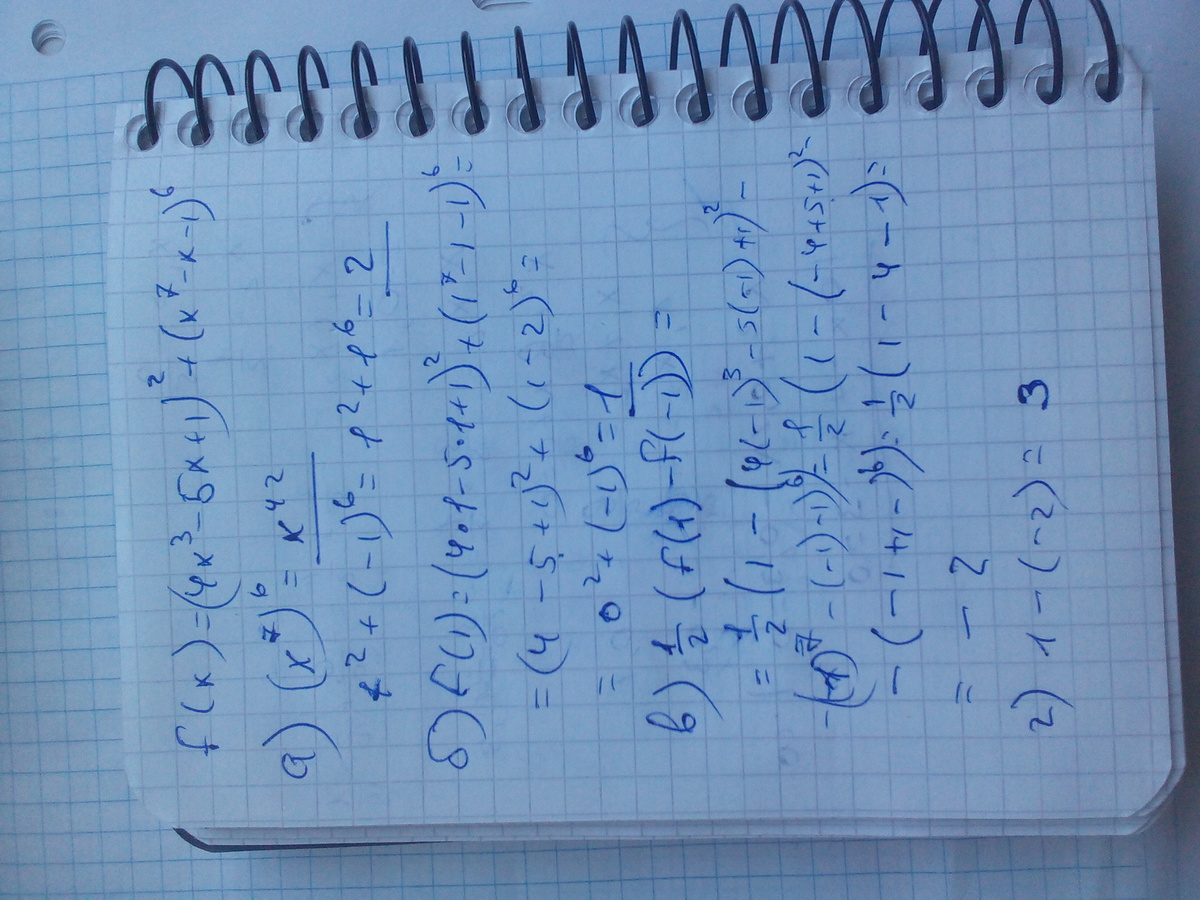 f(x)=(4x³-5x+1)²+(x⁷-x-1)⁶
а) (x⁷)⁶ = x⁴²
1²+(-1)⁶= 1²+1⁶=2
б) f(1)=(4·1-5·1+1)²+(1⁷-1-1)⁶=
=(4-5+1)²+(1-2)⁶=
= 0²+(-1)⁶=1
в) 1/2 (f(1)-f(-1))=
= 1/2 (1-(4(-1)³-5(-1)+1)²-
-(-1)⁷-(-1)-1)⁶)= 1/2 (1-(-4+5+1)²-
-(-1+1-)⁶)= 1/2 (1-4-1)=
= -2
г) 1-(-2)= 3